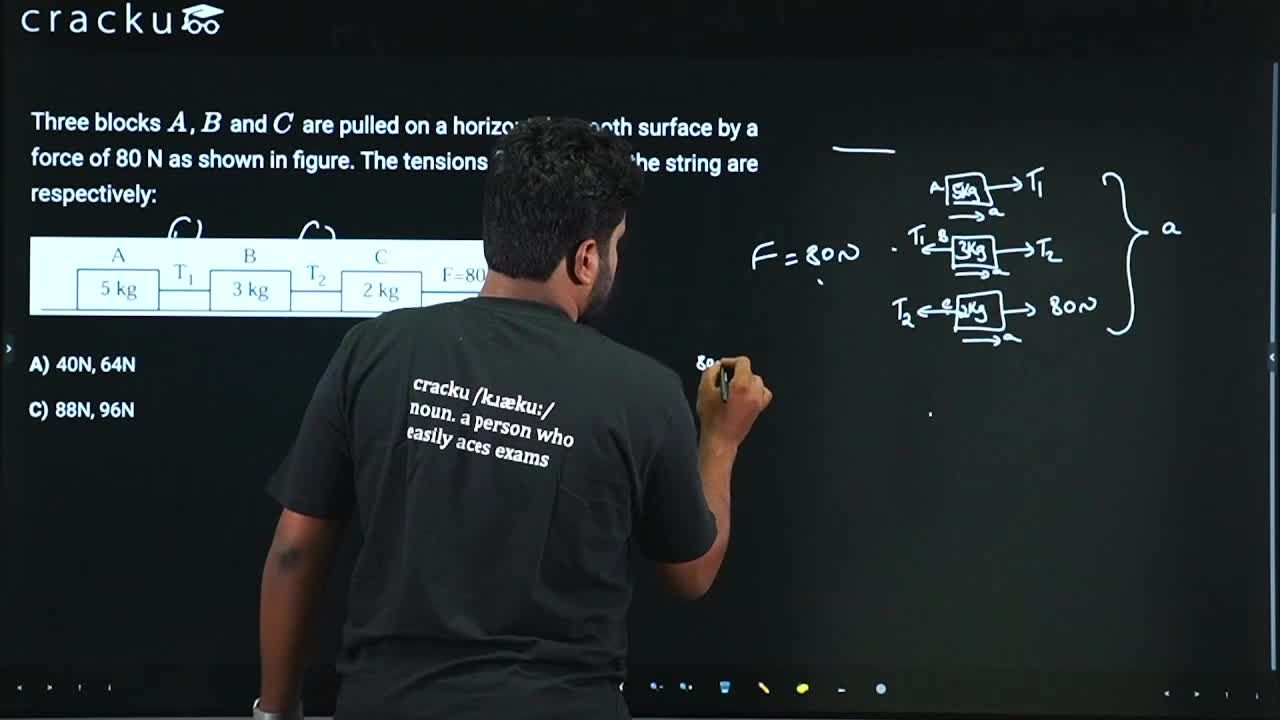 cracku
Three blocks A, B and C are pulled on a surface by a
force of 80 N as shown in figure. The tensions the string are
respectively:
A B C
5 kg T1 3 kg T2 2 kg F=80
A) 40N, 64N
C) 88N, 96N
cracku /kɹæku:/
noun. a person who
easily aces exams
F = 80N
A 5kg T1
a
T1 B 3kg T2
a
T2 C 2kg 80N
a
a
80